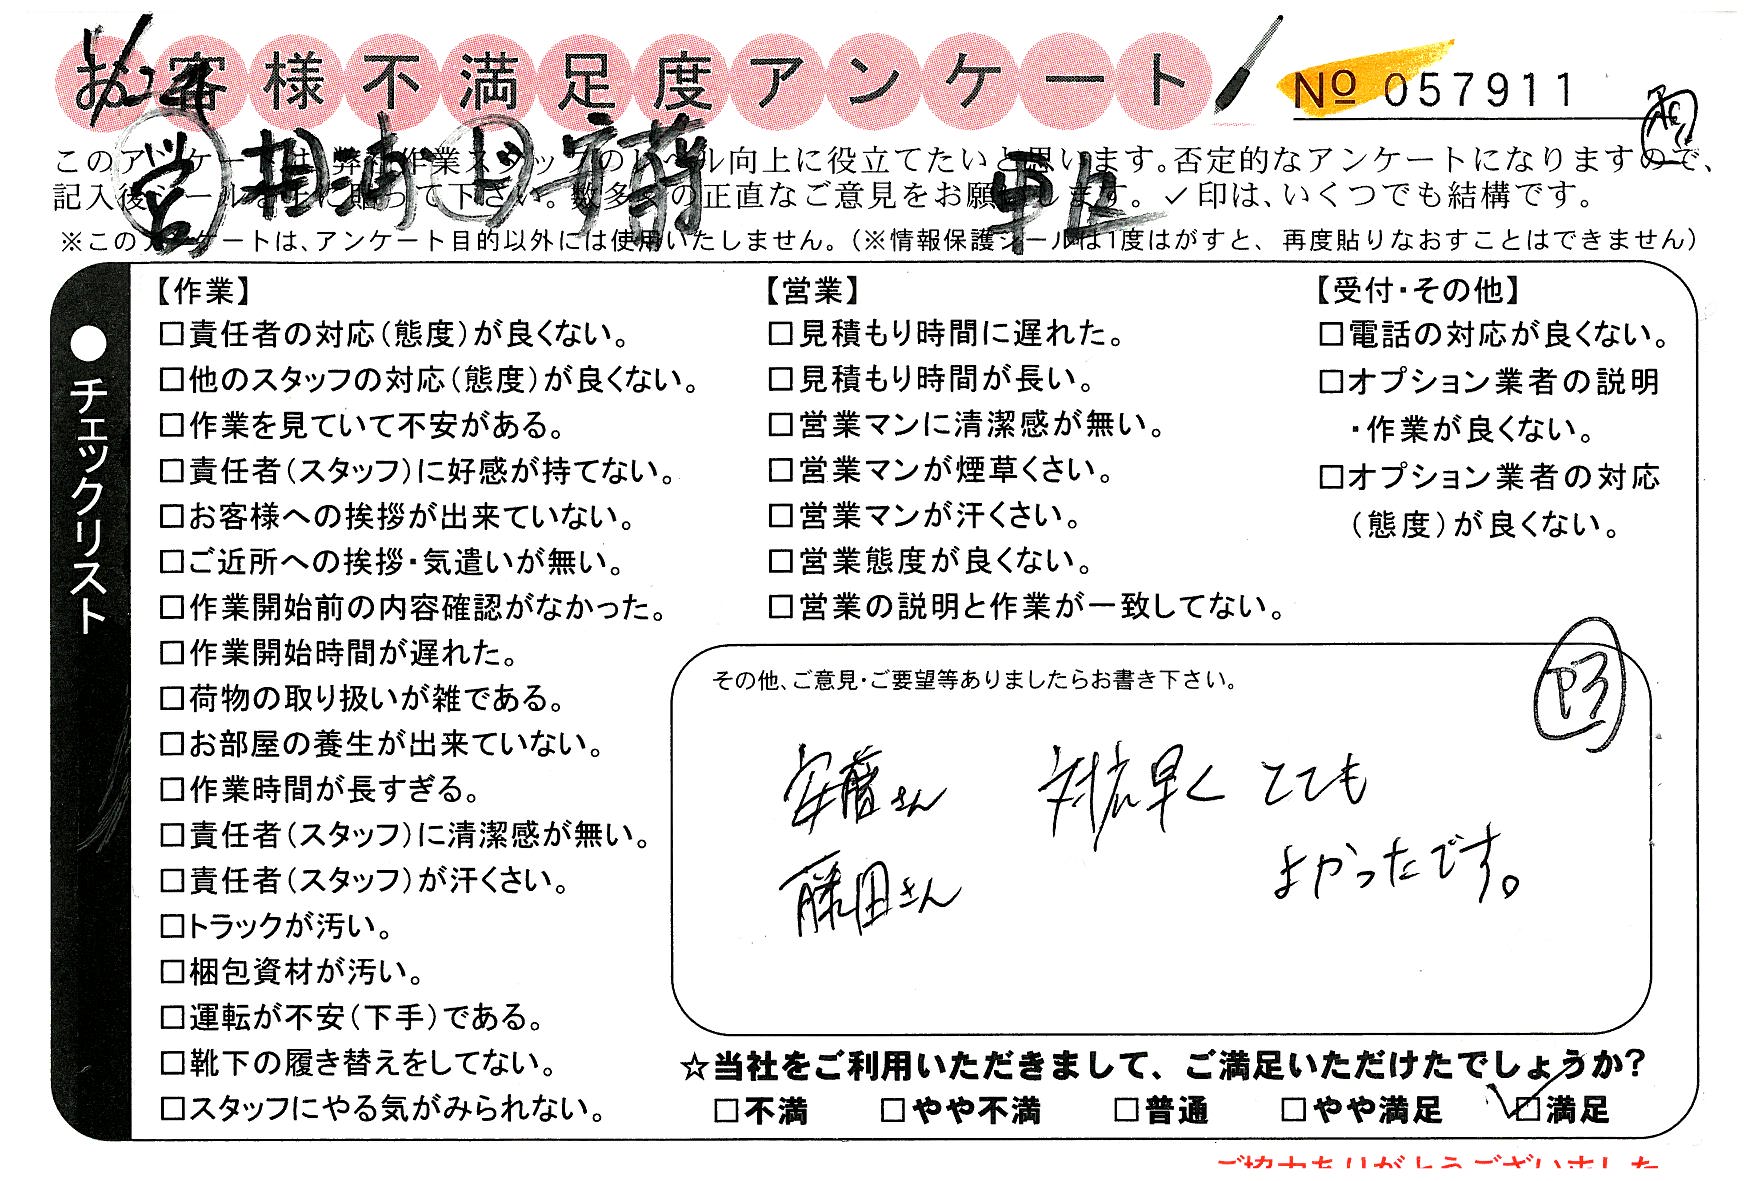 お客様不満足度アンケート
№ 057911
このアンケートは、弊社作業スタッフのレベル向上に役立てたいと思います。否定的なアンケートになりますので、
記入後シールを上に貼って下さい。数多くの正直なご意見をお願いします。✓印は、いくつでも結構です。
※このアンケートは、アンケート目的以外には使用いたしません。(※情報保護シールは1度はがすと、再度貼りなおすことはできません)
●チェックリスト
【作業】
□責任者の対応(態度)が良くない。
□他のスタッフの対応(態度)が良くない。
□作業を見ていて不安がある。
□責任者(スタッフ)に好感が持てない。
□お客様への挨拶が出来ていない。
□ご近所への挨拶・気遣いが無い。
□作業開始前の内容確認がなかった。
□作業開始時間が遅れた。
□荷物の取り扱いが雑である。
□お部屋の養生が出来ていない。
□作業時間が長すぎる。
□責任者(スタッフ)に清潔感が無い。
□責任者(スタッフ)が汗くさい。
□トラックが汚い。
□梱包資材が汚い。
□運転が不安(下手)である。
□靴下の履き替えをしてない。
□スタッフにやる気がみられない。
【営業】
□見積もり時間に遅れた。
□見積もり時間が長い。
□営業マンに清潔感が無い。
□営業マンが煙草くさい。
□営業マンが汗くさい。
□営業態度が良くない。
□営業の説明と作業が一致してない。
【受付・その他】
□電話の対応が良くない。
□オプション業者の説明
・作業が良くない。
□オプション業者の対応
(態度)が良くない。
その他、ご意見・ご要望等ありましたらお書き下さい。
安藤さん 対応早く とても
藤田さん よかったです。
☆当社をご利用いただきまして、ご満足いただけたでしょうか?
□不満 □やや不満 □普通 □やや満足 ☑満足
ご協力ありがとうございました